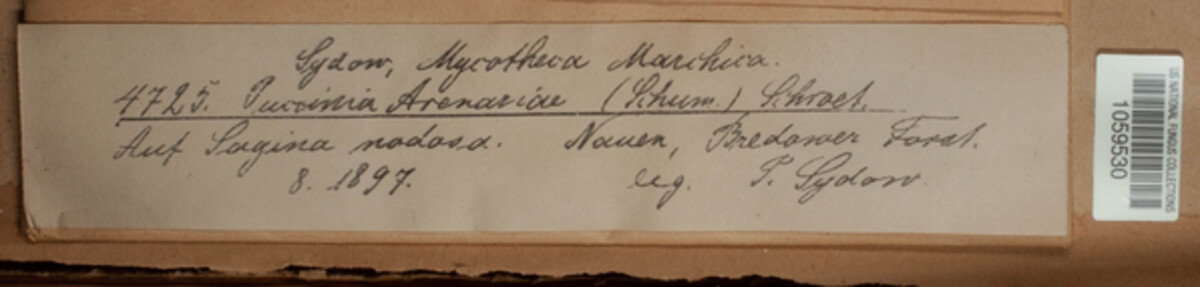 Sydow, Mycotheca Marchica.
4725. Puccinia Arenariae (Schum.) Schroet.
Auf Sagina nodosa. Nauen, Bredower Forst.
8. 1897. leg. P. Sydow.
US NATIONAL FUNGUS COLLECTIONS
1059530